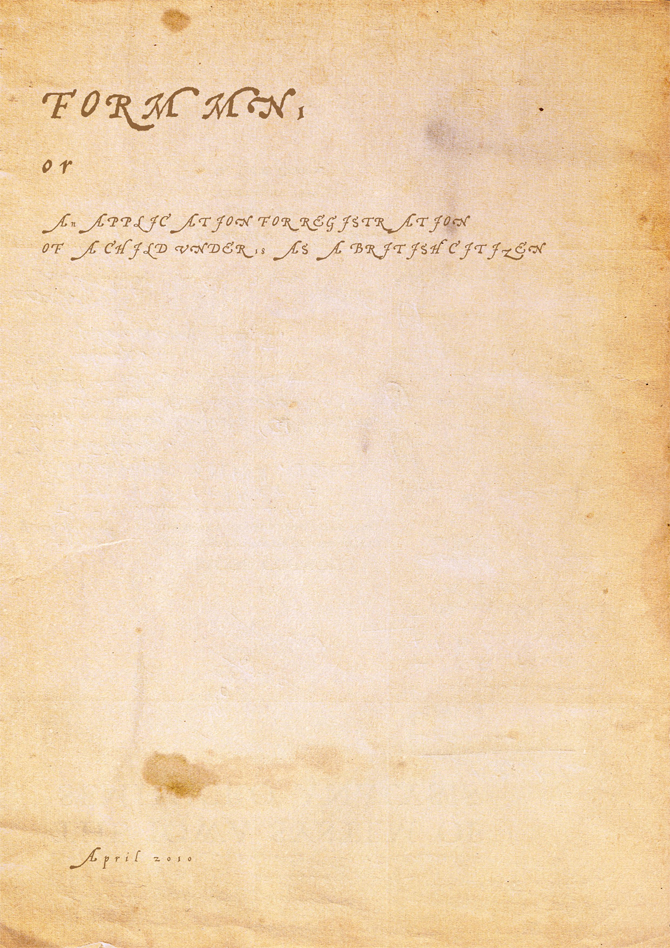 FORM MN1
or
An APPLICATION FOR REGISTRATION
OF A CHILD UNDER 18 AS A BRITISH CITIZEN
April 2010